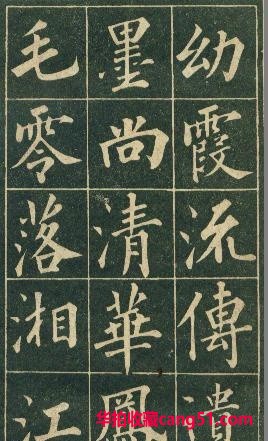 幼霞流傳遺
墨尚清華鳳
毛零落湘江
华拍收藏cang51.com